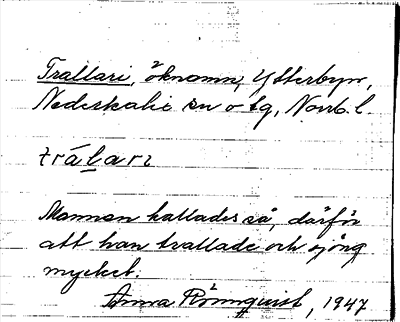 Trallari, öknamn, Ytterbyn,
Nederkalix sn o tg, Norrb. l.
trálari
Mannen kallades så, därför
att han trallade och sjöng
mycket.
Anna Rönnquist, 1947